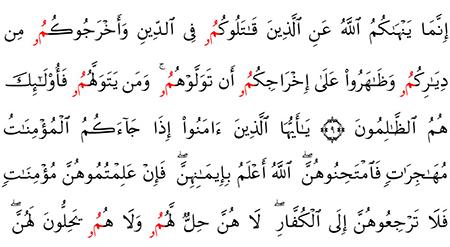 إِنَّمَا يَنْهَىٰكُمُ ٱللَّهُ عَنِ ٱلَّذِينَ قَـٰتَلُوكُمُۥ فِى ٱلدِّينِ وَأَخْرَجُوكُمُۥ مِن
دِيَـٰرِكُمُۥ وَظَـٰهَرُوا۟ عَلَىٰ إِخْرَاجِكُمُۥ أَن تَوَلَّوْهُمُۥ ۚ وَمَن يَتَوَلَّهُمُۥ فَأُو۟لَـٰٓئِكَ
هُمُ ٱلظَّـٰلِمُونَ ۝٩ يَـٰٓأَيُّهَا ٱلَّذِينَ ءَامَنُوا۟ إِذَا جَآءَكُمُ ٱلْمُؤْمِنَـٰتُ
مُهَـٰجِرَٰتٍ فَٱمْتَحِنُوهُنَّ ۖ ٱللَّهُ أَعْلَمُ بِإِيمَـٰنِهِنَّ ۖ فَإِنْ عَلِمْتُمُوهُنَّ مُؤْمِنَـٰتٍ
فَلَا تَرْجِعُوهُنَّ إِلَى ٱلْكُفَّارِ ۖ لَا هُنَّ حِلٌّ لَّهُمُۥ وَلَا هُمُۥ يَحِلُّونَ لَهُنَّ ۖ